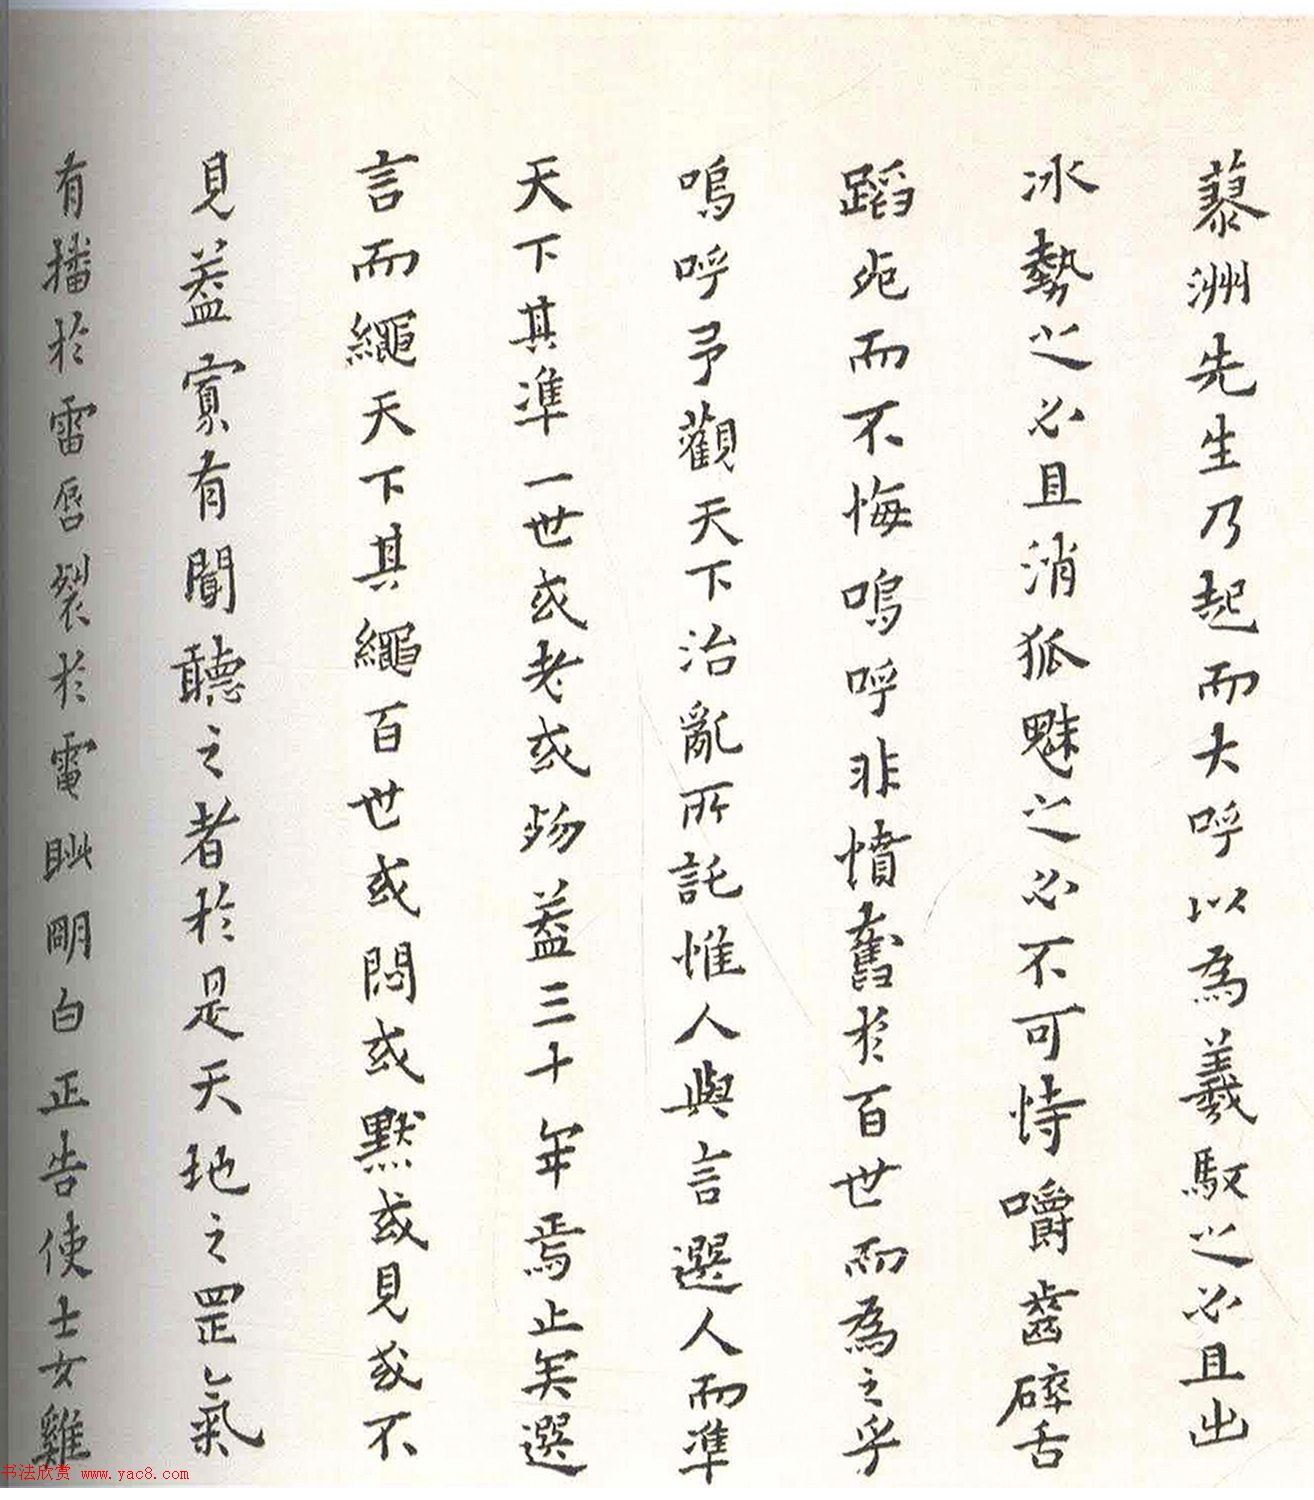 藜洲先生乃起而大呼以為羲馭之必且出
冰勢之必且消狐魅之必不可恃嚼齒碎舌
蹈死而不悔嗚呼非憤奮於百世而為之乎
嗚呼予觀天下治亂所託惟人與言選人而準
天下其準一世或老或歾葢三十年焉止矣選
言而繩天下其繩百世或悶或默或見或不
見葢實有聞聽之者於是天地之罡氣
有播於雷唇裂於電眦明白正告使士女雞
书法欣赏 www.yac8.com